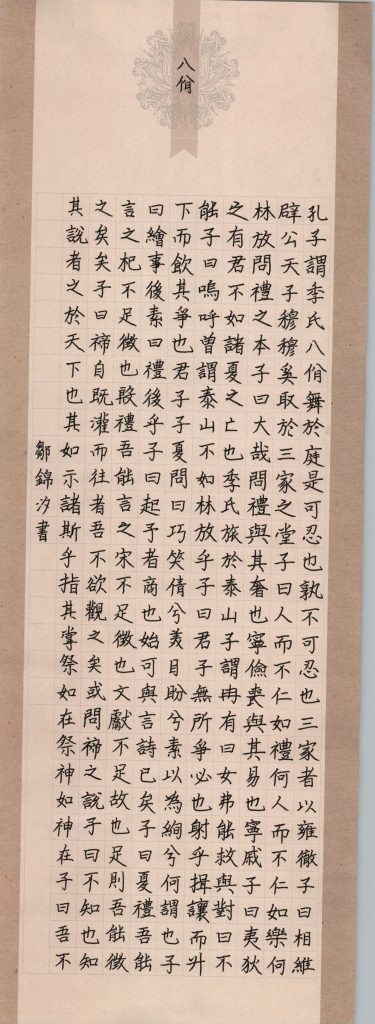 八佾
孔子謂季氏八佾舞於庭是可忍也孰不可忍也三家者以雍徹子曰相維
辟公天子穆穆奚取於三家之堂子曰人而不仁如禮何人而不仁如樂何
林放問禮之本子曰大哉問禮與其奢也寧儉喪與其易也寧戚子曰夷狄
之有君不如諸夏之亡也季氏旅於泰山子謂冉有曰女弗能救與對曰不
能子曰嗚呼曾謂泰山不如林放乎子曰君子無所爭必也射乎揖讓而升
下而飲其爭也君子子夏問曰巧笑倩兮美目盼兮素以為絢兮何謂也子
曰繪事後素曰禮後乎子曰起予者商也始可與言詩已矣子曰夏禮吾能
言之杞不足徵也殷禮吾能言之宋不足徵也文獻不足故也足則吾能徵
之矣矣子曰禘自既灌而往者吾不欲觀之矣或問禘之說子曰不知也知
其說者之於天下也其如示諸斯乎指其掌祭如在祭神如神在子曰吾不
鄒錦汐書